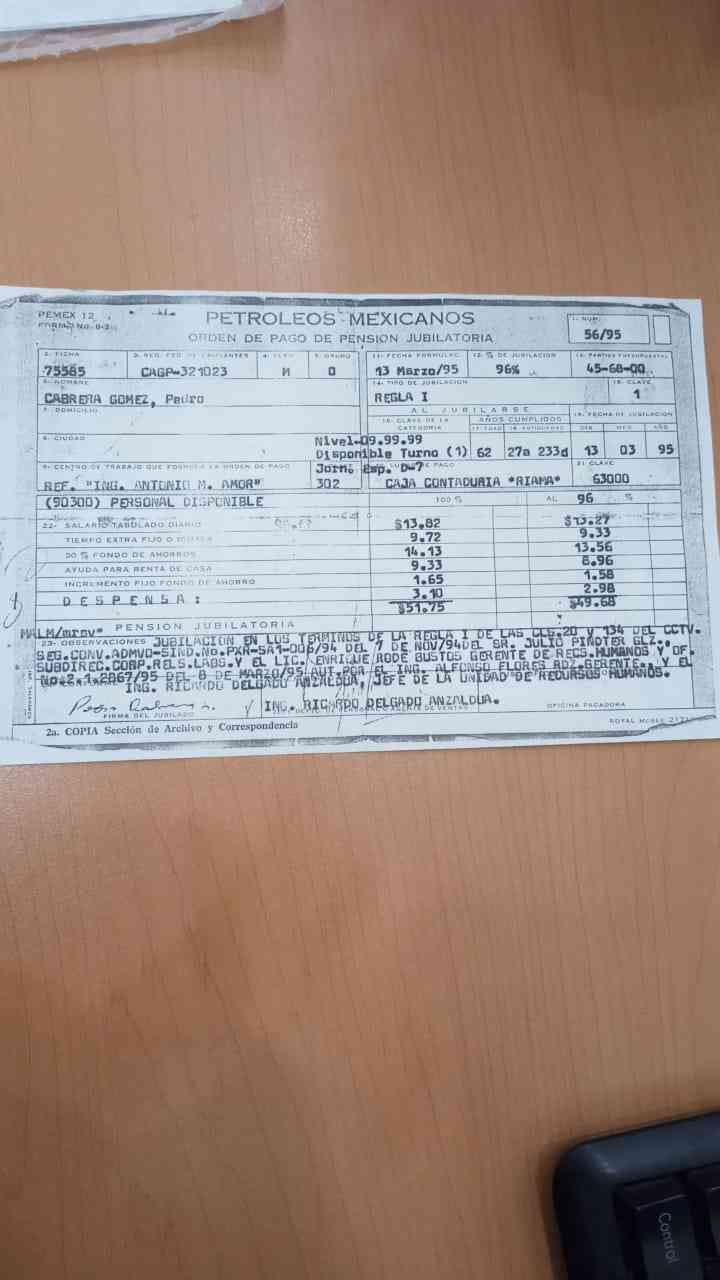 PEMEX 12
PETROLEOS MEXICANOS
1- NUM.
ORDEN DE PAGO DE PENSION JUBILATORIA
56/95
2- FICHA
4- SEXO
11- FECHA FORMULAC.
12- % DE JUBILACION
75585 CAGP-321023 M 0 13 Marzo/95 96% 45-68-00
14- TIPO DE JUBILACION
15- CLAVE
CABRERA GOMEZ, Pedro REGLA I 1
7- DOMICILIO
AL JUBILARSE
16- CLAVE DE LA CATEGORIA
AÑOS CUMPLIDOS
19- FECHA DE JUBILACION
8- CIUDAD
DIA MES AÑO
Nivel-09.99.99
Disponible Turno (1) 62 27a 233d 13 03 95
9- CENTRO DE TRABAJO QUE FORMULA LA ORDEN DE PAGO
Jorn. Esp. D-7
PAGO
21 CLAVE
REF. "ING. ANTONIO M. AMOR" 302 CAJA CONTADURIA *RIAMA* 63000
(90300) PERSONAL DISPONIBLE 100 % AL 96 %
22- SALARIO TABULADO DIARIO $13.82 $13.27
TIEMPO EXTRA FIJO O 9.72 9.33
FONDO DE AHORROS 14.13 13.56
AYUDA PARA RENTA DE CASA 9.33 8.96
INCREMENTO FIJO FONDO DE AHORRO 1.65 1.58
DESPENSA: 3.10 2.98
$51.75 $49.68
MALM/mrsv* PENSION JUBILATORIA
23- OBSERVACIONES JUBILACION EN LOS TERMINOS DE LA REGLA I DE LAS CLS.20 Y 134 DEL CCTV.
SEG.CONV.ADMVO-SIND.No.PXR-SA1-006/94 DEL 7 DE NOV/94DEL SR. JULIO PINDTER GLZ.,
SUBDIREC.CORP.RELS.LABS.Y EL LIC. ENRIQUE RODE BUSTOS GERENTE DE RECS.HUMANOS Y OF.
No.2.1.2867/95 DEL 8 DE MARZO/95 AUT.POR EL ING. ALFONSO FLORES RDZ.GERENTE., Y EL
ING. RICARDO DELGADO ANZALDUA, JEFE DE LA UNIDAD DE RECURSOS HUMANOS.
ING. RICARDO DELGADO ANZALDUA.
FIRMA DEL JUBILADO
OFICINA PAGADORA
2a. COPIA Sección de Archivo y Correspondencia
Control